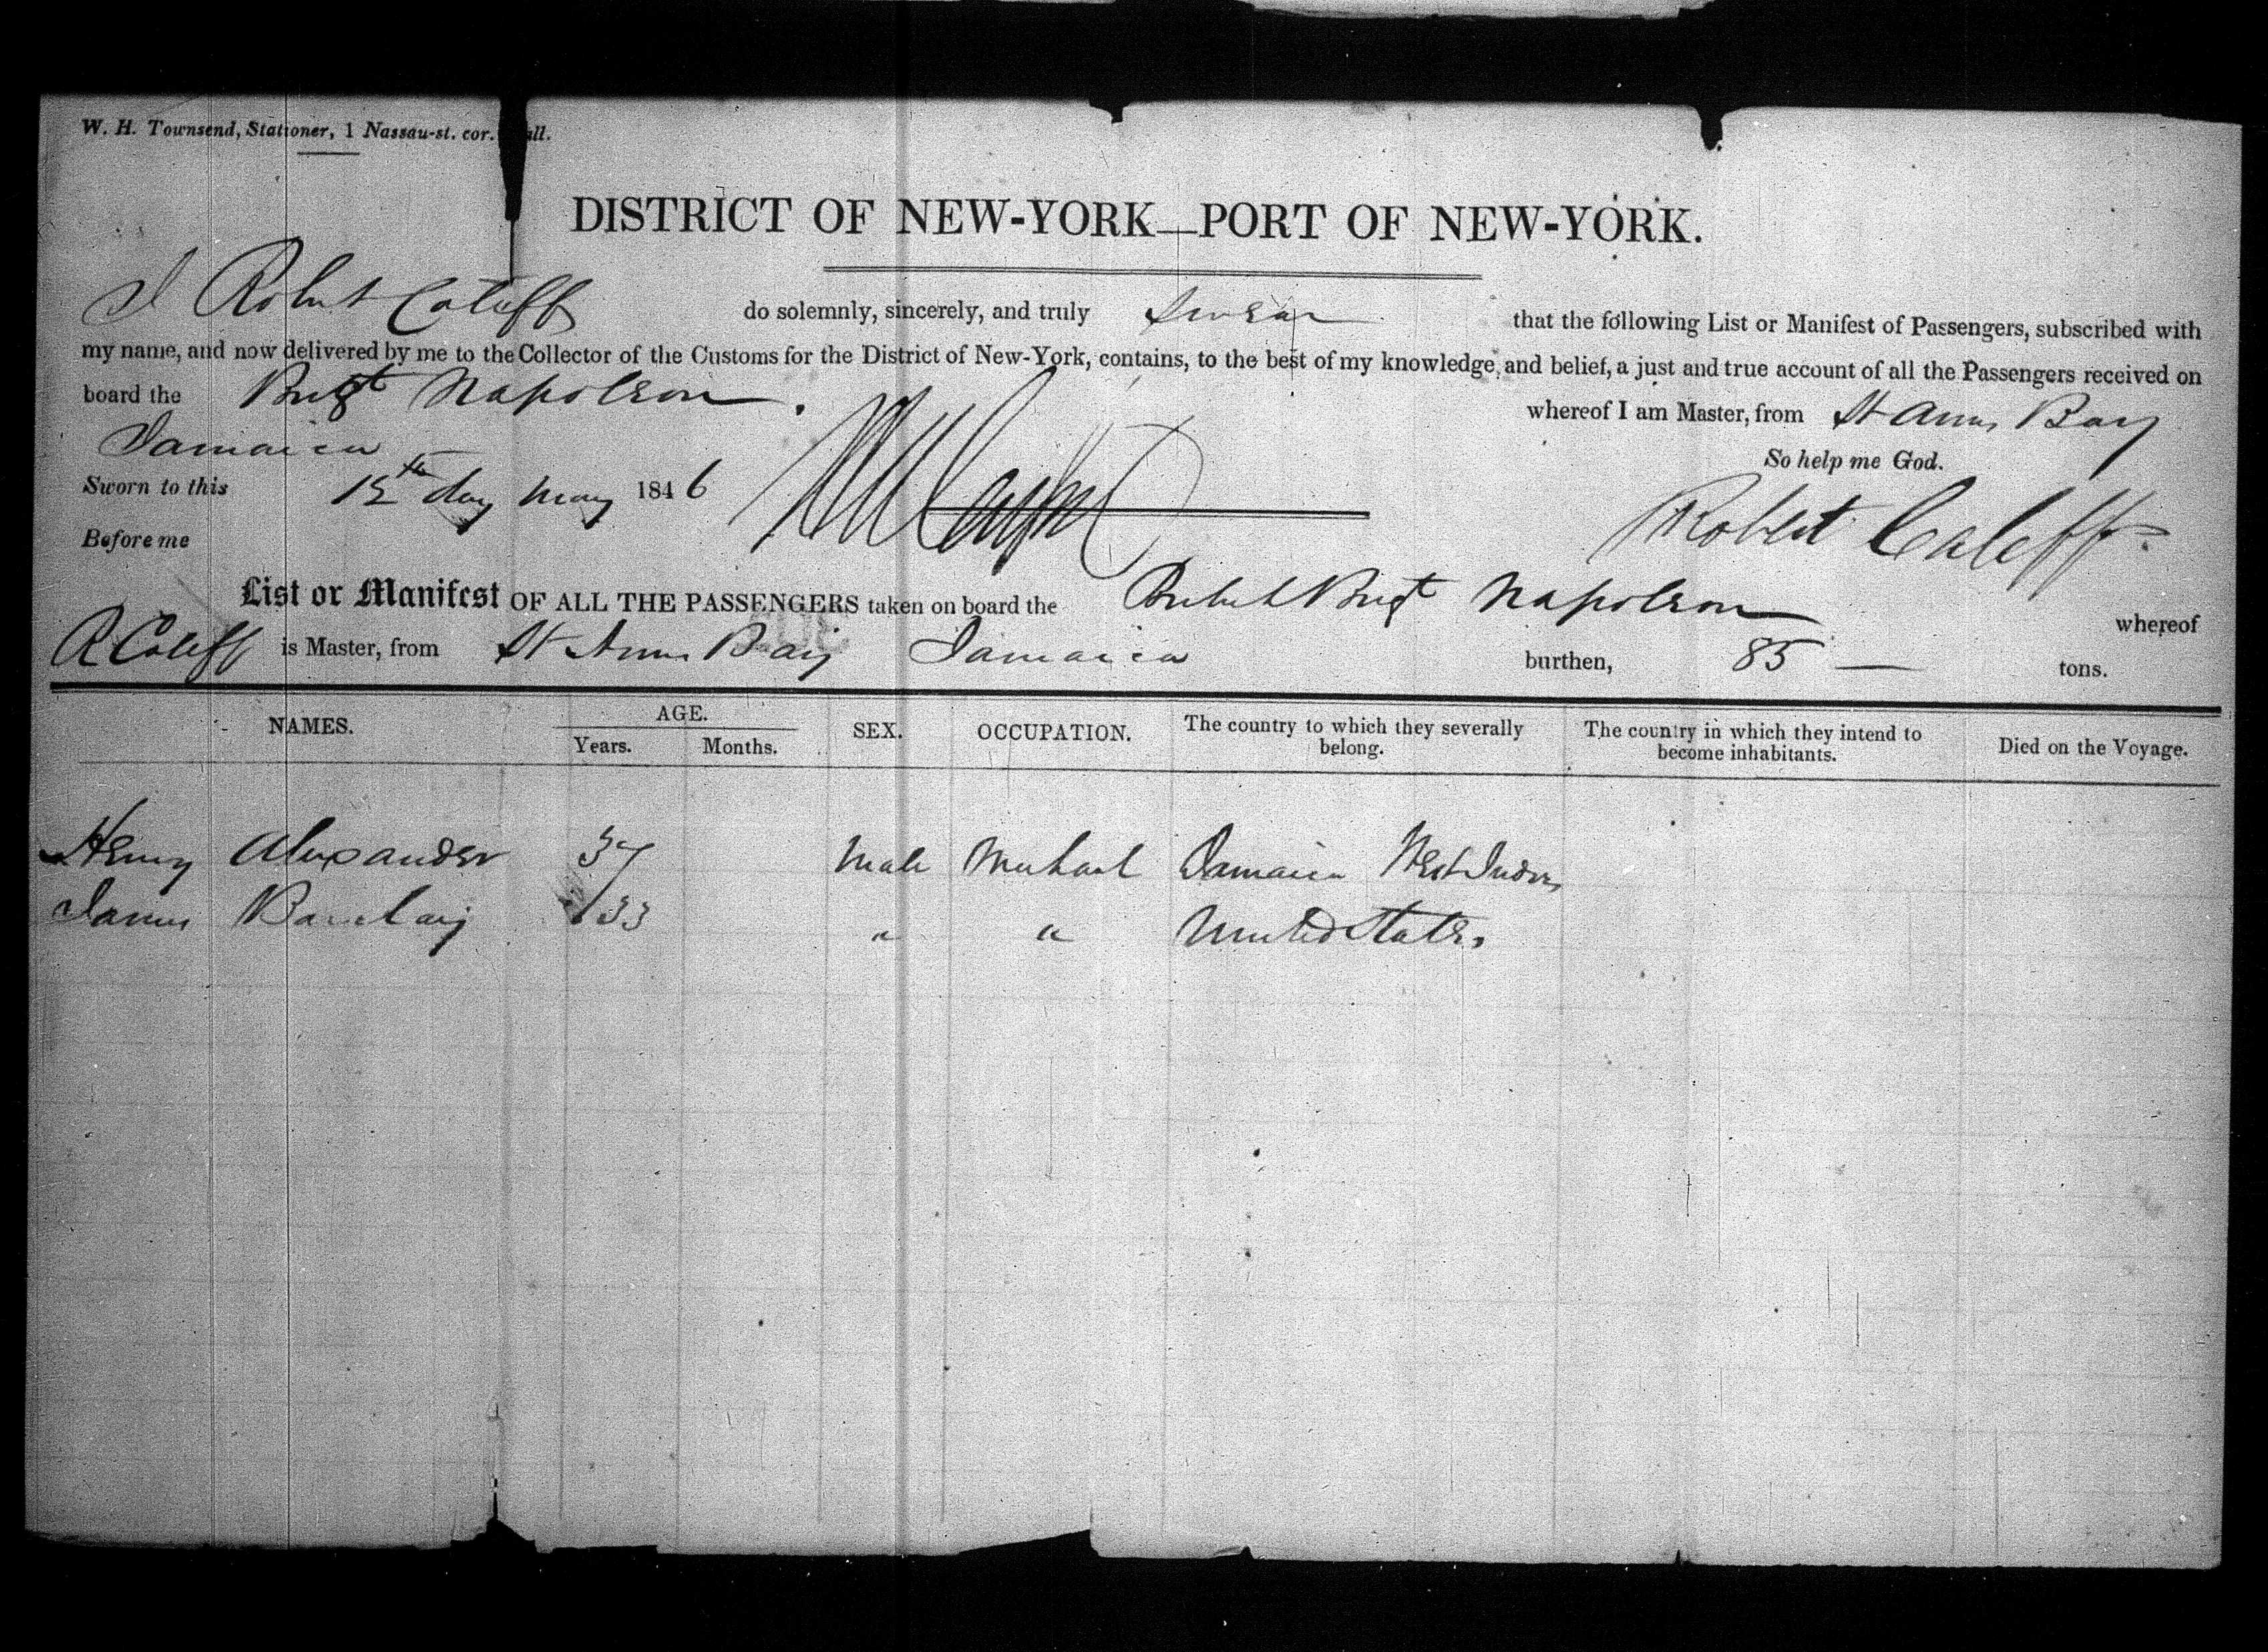 W. H. Townsend, Stationer, 1 Nassau-st. cor. all.
DISTRICT OF NEW-YORK—PORT OF NEW-YORK.
I Robert Caleff do solemnly, sincerely, and truly swear that the following List or Manifest of Passengers, subscribed with
my name, and now delivered by me to the Collector of the Customs for the District of New-York, contains, to the best of my knowledge and belief, a just and true account of all the Passengers received on
board the Brigt Napoleon whereof I am Master, from St Anns Bay
Jamaica So help me God.
Sworn to this day May 1846 Robert Caleff
Before me
List or Manifest OF ALL THE PASSENGERS taken on board the British Brigt Napoleon whereof
R Caleff is Master, from St Anns Bay Jamaica burthen, 85 — tons.
NAMES. AGE. SEX. OCCUPATION. The country to which they severally belong. The country in which they intend to become inhabitants. Died on the Voyage.
Years. Months.
Henry Alexander 37 Male Merchant Jamaica West Indies
James Barclay 33 " " United States.